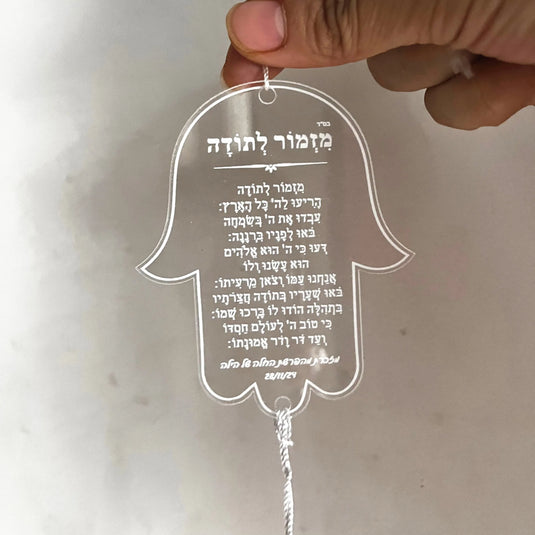 בס"ד
מִזְמוֹר לְתוֹדָה
מִזְמוֹר לְתוֹדָה
הָרִיעוּ לַה' כָּל הָאָרֶץ:
עִבְדוּ אֶת ה' בְּשִׂמְחָה
בֹּאוּ לְפָנָיו בִּרְנָנָה:
דְּעוּ כִּי ה' הוּא אֱלֹהִים
הוּא עָשָׂנוּ וְלוֹ
אֲנַחְנוּ עַמּוֹ וְצֹאן מַרְעִיתוֹ:
בֹּאוּ שְׁעָרָיו בְּתוֹדָה חֲצֵרֹתָיו
בִּתְהִלָּה הוֹדוּ לוֹ בָּרְכוּ שְׁמוֹ:
כִּי טוֹב ה' לְעוֹלָם חַסְדּוֹ
וְעַד דֹּר וָדֹר אֱמוּנָתוֹ:
מזכרת מהפרשת החלה של הילה
28/11/24